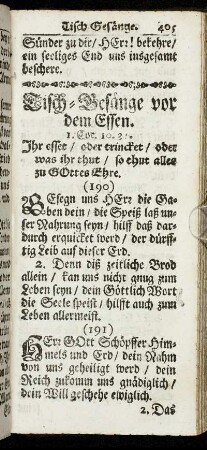 Tisch Gesänge. 405
Sünder zu dir/ HErr! bekehre/
ein seeliges End uns insgesamt
beschere.
Tisch-Gesänge vor
dem Essen.
1. Cor. 10. 31.
Ihr esset / oder trincket / oder
was ihr thut / so thut alles
zu GOttes Ehre.
(190)
GEsegn uns HErr die Ga-
ben dein / die Speiß laß un-
ser Nahrung seyn / hilff daß dar-
durch erquicket werd / der dürff-
tig Leib auf dieser Erd.
2. Denn diß zeitliche Brod
allein / kan uns nicht gnug zum
Leben seyn / dein Göttlich Wort
die Seele speist / hilfft auch zum
Leben allermeist.
(191)
HErr GOtt Schöpffer Him-
mels und Erd / dein Nahm
von uns geheiligt werd / dein
Reich zukomm uns gnädiglich /
dein Will geschehe ewiglich.
2. Das